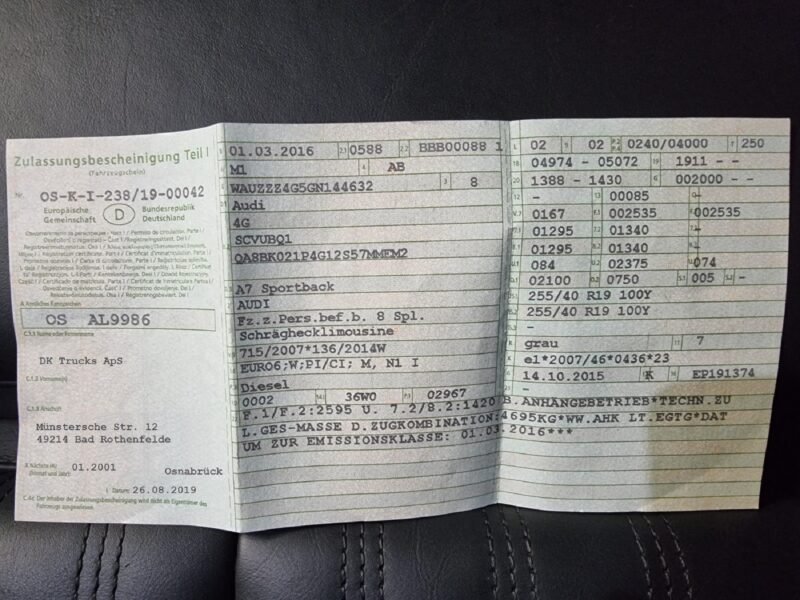 Zulassungsbescheinigung Teil I
(Fahrzeugschein)
Nr. OS-K-I-238/19-00042
Europäische Gemeinschaft
D
Bundesrepublik Deutschland
A Amtliches Kennzeichen
OS AL9986
C.1.1 Name oder Firmenname
DK Trucks ApS
C.1.2 Vorname(n)
C.1.3 Anschrift
Münstersche Str. 12
49214 Bad Rothenfelde
01.2001
Osnabrück
Datum: 26.08.2019
C.4c Der Inhaber der Zulassungsbescheinigung wird nicht als Eigentümer des Fahrzeugs ausgewiesen.
01.03.2016 2.1 0588 2.2 BBB00088 1
M1 AB
WAUZZZ4G5GN144632 3 8
Audi
4G
SCVUBQ1
QASBK021P4G12S57MMEM2
A7 Sportback
AUDI
Fz.z.Pers.bef.b. 8 Spl.
Schräghecklimousine
715/2007*136/2014W
EURO6;W;PI/CI; M, N1 I
Diesel
0002 36W0 02967
F.1/F.2:2595 U. 7.2/8.2:1420 B.ANHÄNGEBETRIEB*TECHN.ZU
L.GES-MASSE D.ZUGKOMBINATION:4695KG*WW.AHK LT.EGTG*DAT
UM ZUR EMISSIONSKLASSE: 01.03.2016***
L 02 9 02 0240/04000 T 250
18 04974 - 05072 19 1911 - -
20 1388 - 1430 G 002000 - -
12 - 13 00085
0167 F.1 002535 002535
7.1 01295 7.2 01340 -
8.1 01295 8.2 01340 -
U.1 084 U.2 02375 074
O.1 02100 O.2 0750 S.1 005 S.2 -
255/40 R19 100Y
255/40 R19 100Y
-
grau 7
K e1*2007/46*0436*23
14.10.2015 K EP191374
-